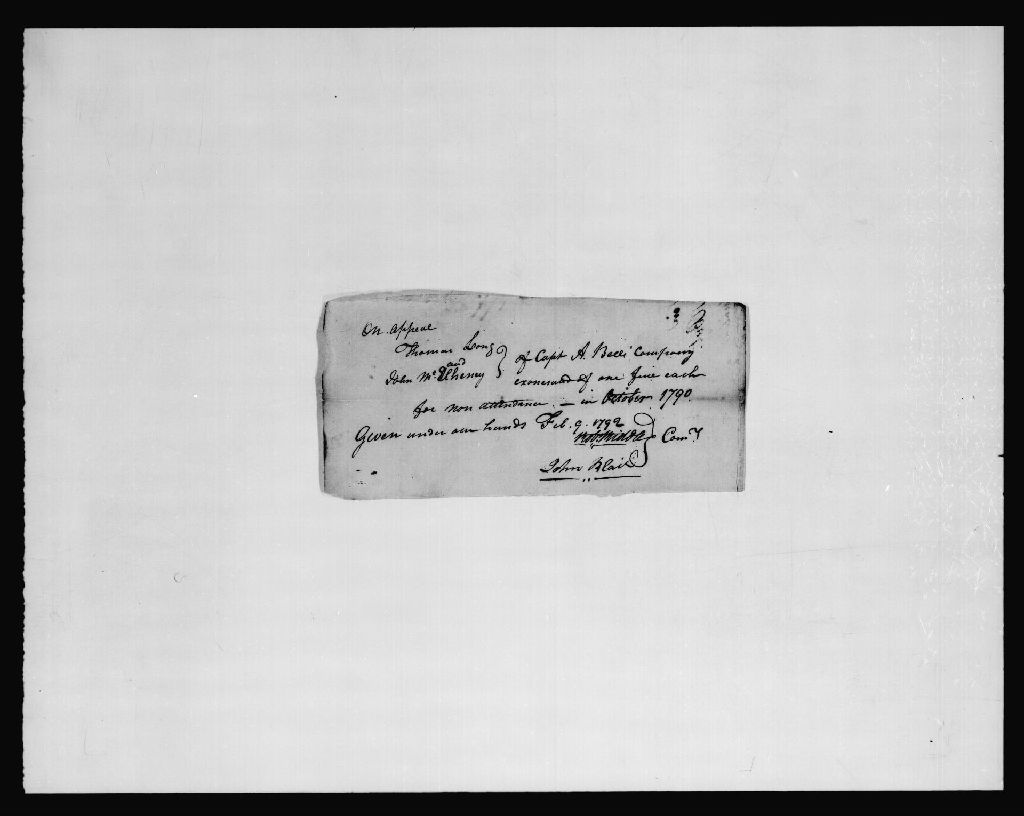 On Appeal
Thomas Long
and
John McElheney } of Capt A. Bell's Company
exonerated of one fine each
for non attendance — in October 1790
Given under our hands Feb. 9. 1792
John Blair } Comrs